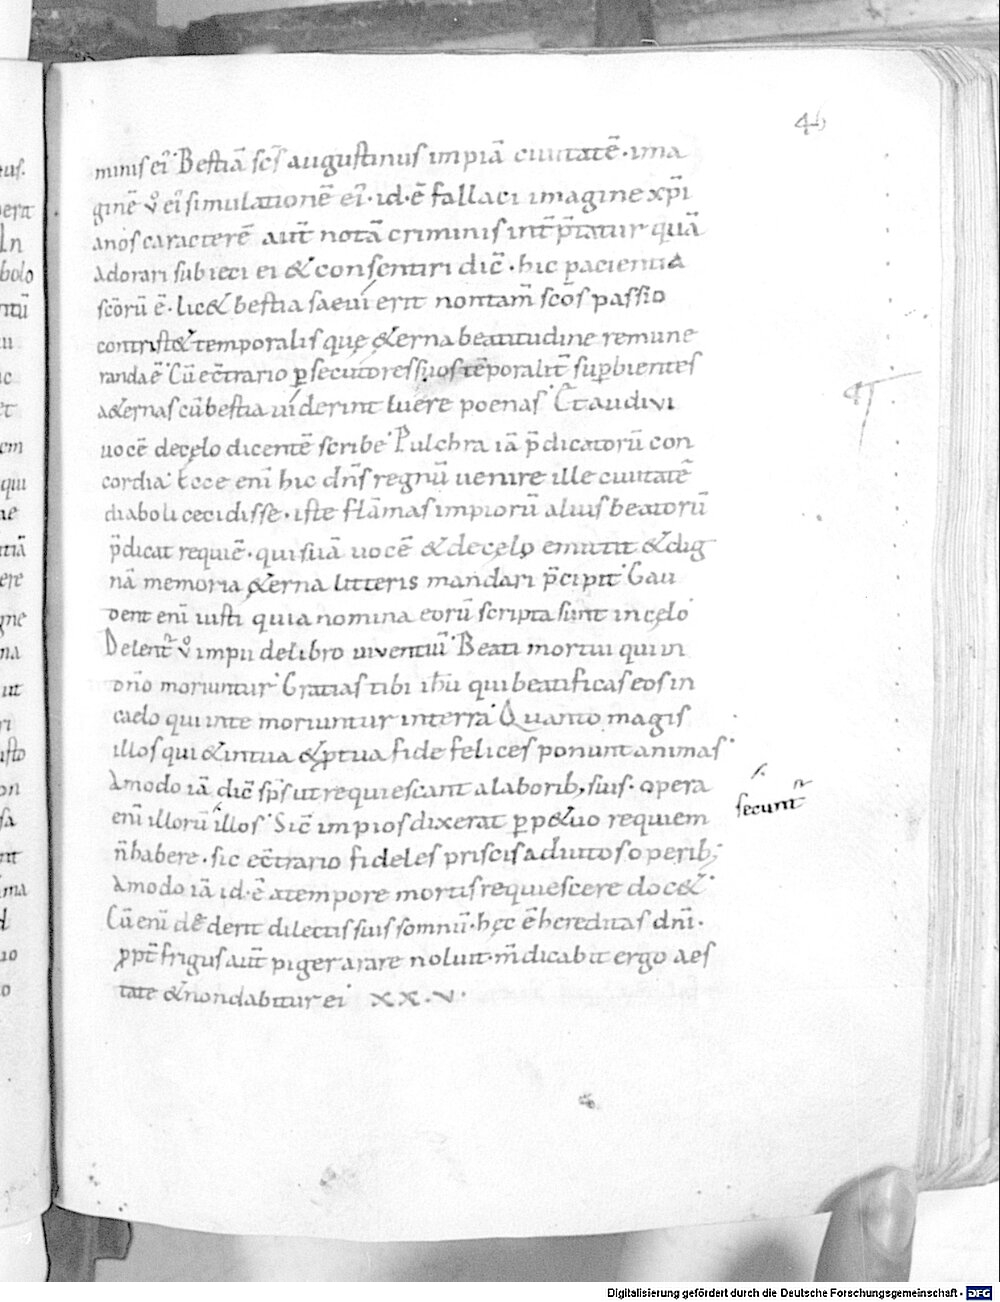 46
minis ei᷎ Bestiā scs̄ augustinus impiā ciuitatē · ima
ginē v̊ ei᷎ simulationē ei᷎ · id · ē fallaci imagine xp̄i
anos caracterē aut̄ notā criminis int̄ p̄tatur quā
adorari subieci ei & consentiri dic̄ · hic pacientia
scōrū ē · lic& bestia saeuierit nontam̄ scōs passio
contrist& temporalis quę &erna beatitudine remune
randa ē᷎ Cū ec̄trario ꝑsecutores suos tēporalit̄ suꝑbientes
a&ernas cū bestia uiderint luere poenas᷎ &̄ audivi
uocē decęlo dicentē scribe᷎ Pulchra iā p̄dicatorū con
cordia᷎ Ecce enī hic dn̄s regnū uenire ille ciuitatē
diaboli cecidisse · iste flāmas impiorū alius beatorū
p̄dicat requiē · qui suā uocē & decęlo emittit & dig
nā memoria &erna litteris mandari p̄cipit᷎ Gau
dent enī iusti quia nomina eorū scripta sunt incęlo᷎
Delent̄ v̊ impii delibro uiventiū᷎ Beati mortui qui in
dn̄o moriuntur᷎ Gratias tibi ih̄u qui beatificas eos in
caelo qui inte moriuntur interra᷎ Quanto magis
illos qui & intua & ꝓ tua fide felices ponunt animas᷎
Amodo iā dic̄ sp̄s ut requiescant alaborib; suis · opera
secunt̄
enī illorū illos᷎ Sic̄ impios dixerat ꝑp&uo requiem
n̄ habere · sic ec̄trario fideles priscis adiutos operib;
Amodo iā id · ē atempore mortis requiescere doc&᷎
Cū enī dēderit dilectis suis somnū · hęc ē hereditas dn̄i ·
ꝓpt̄ frigus aut̄ piger arare noluit · m̄dicabit ergo aes
tate & non dabitur ei᷎ xx · v ·
Digitalisierung gefördert durch die Deutsche Forschungsgemeinschaft · DFG